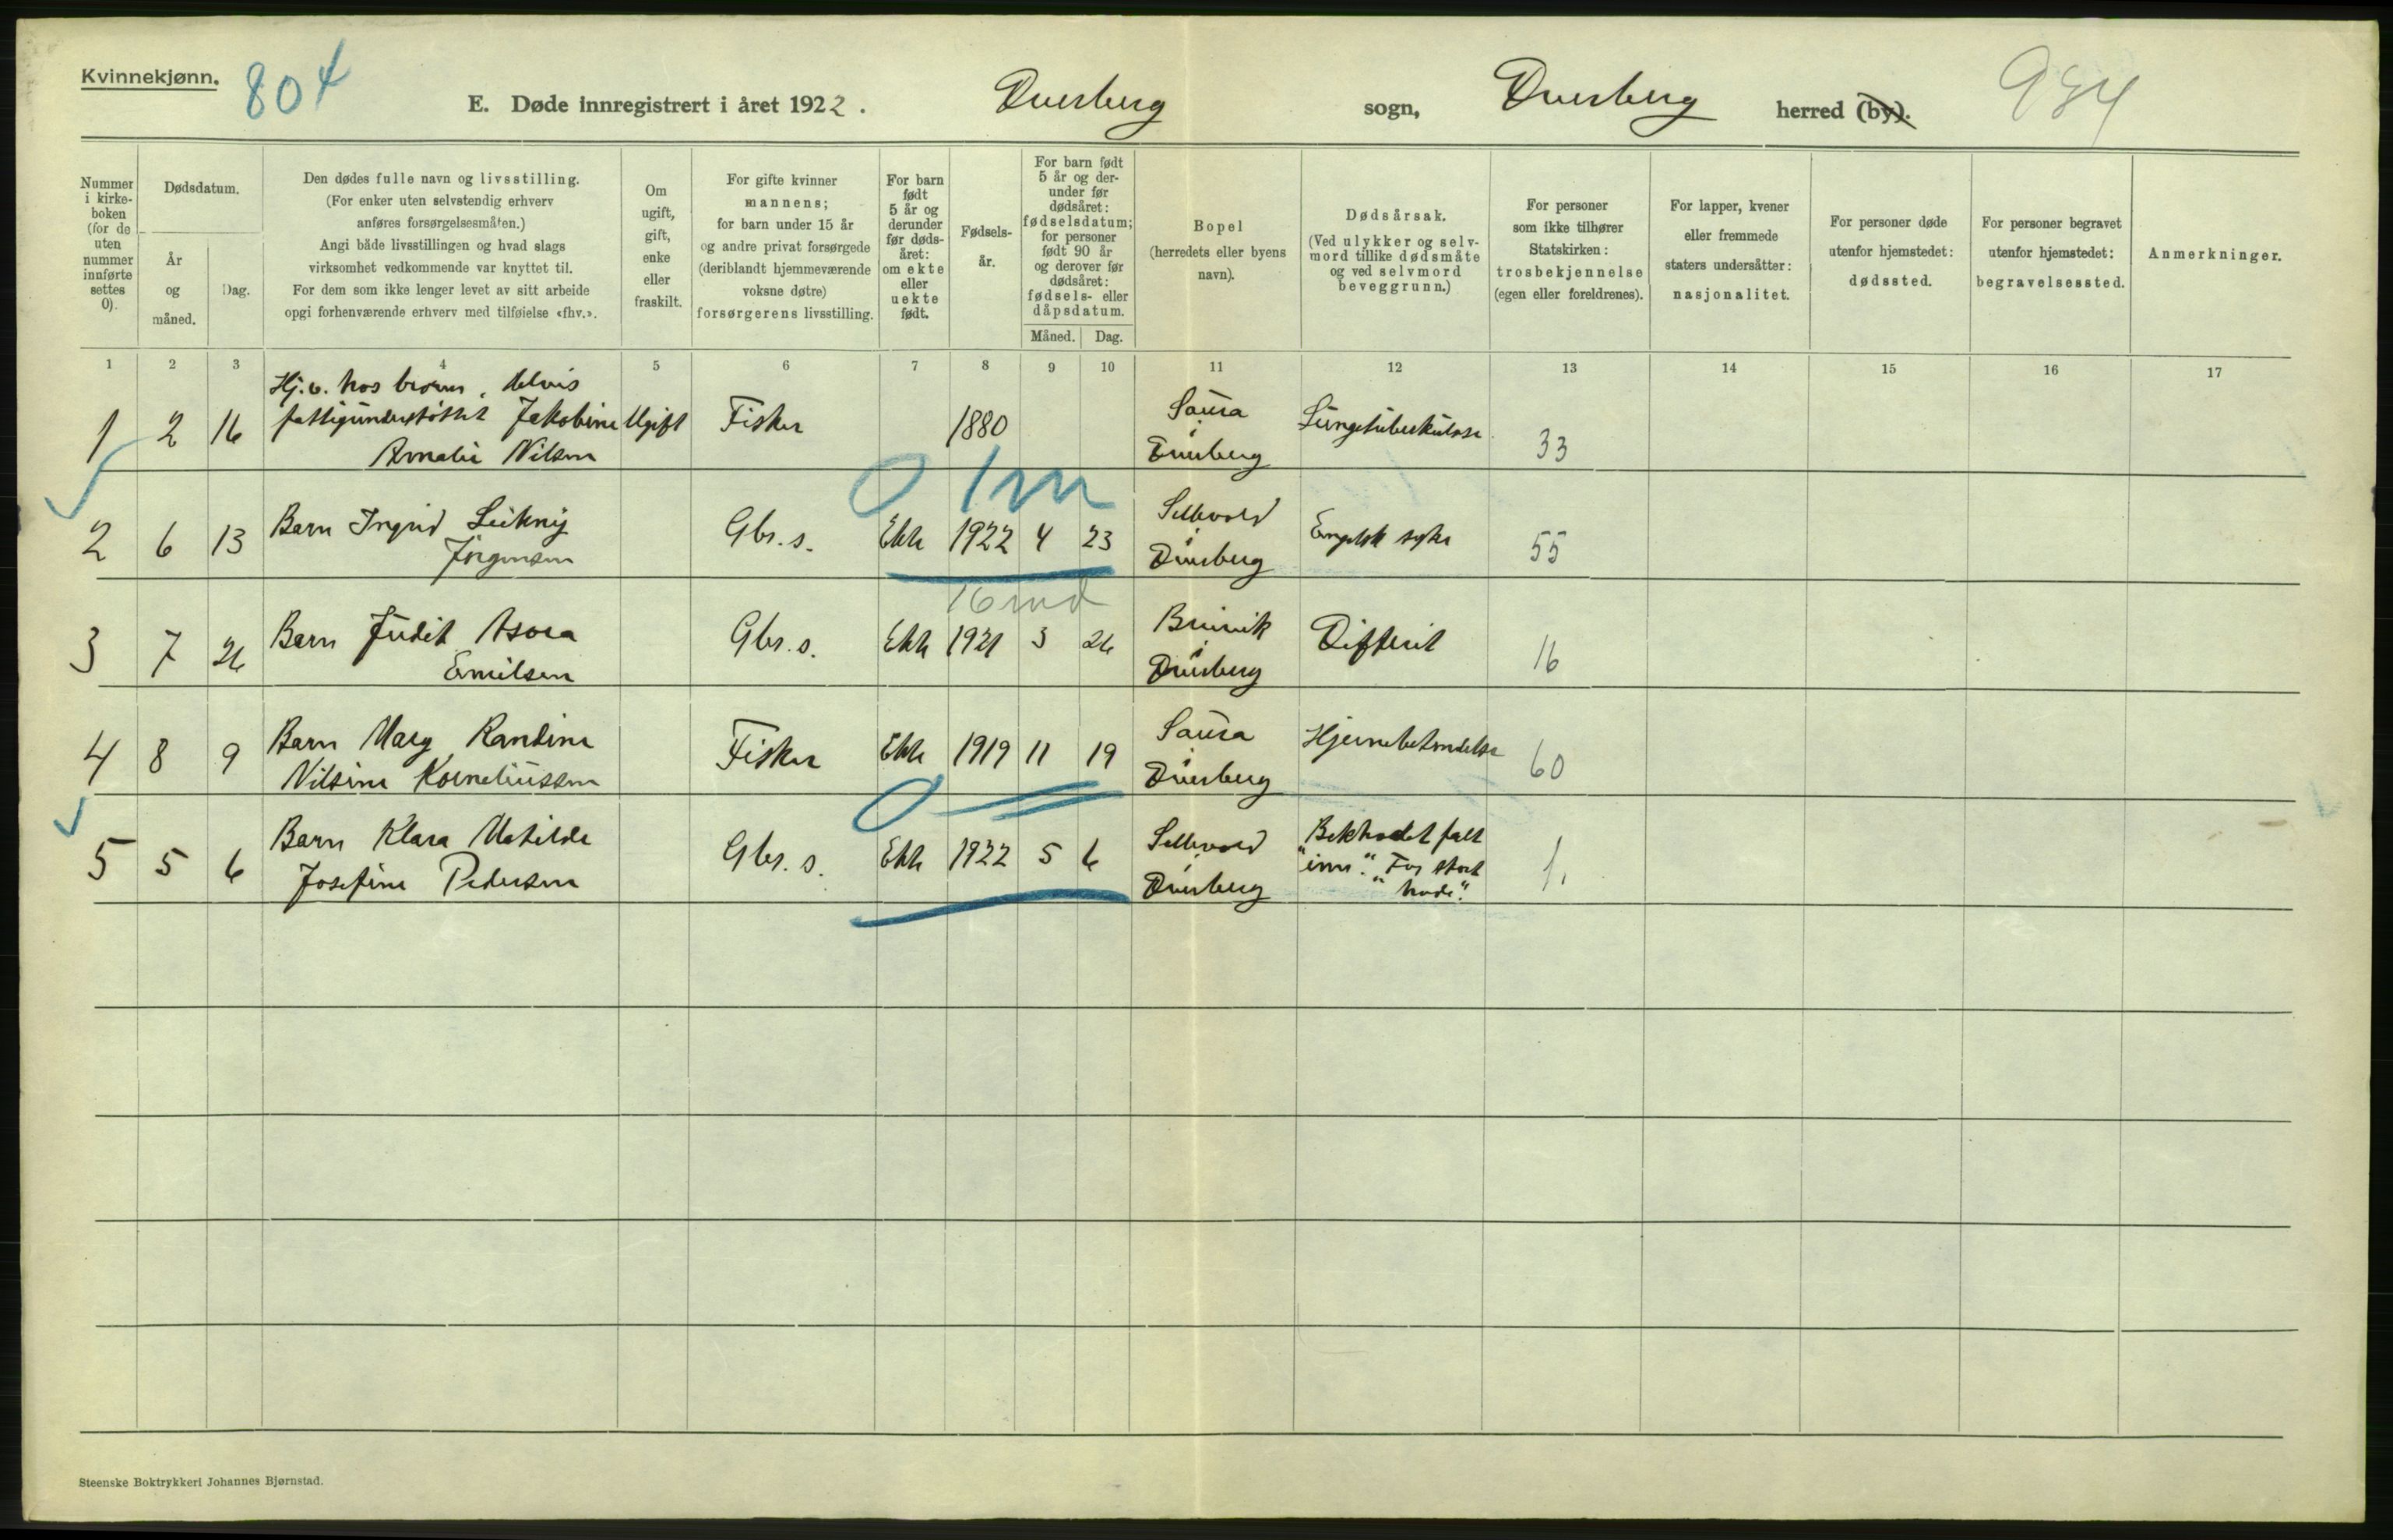 Kvinnekjønn.
804
E. Døde innregistrert i året 1922.
Dverberg
sogn,
Dverberg
herred (by).
934
Nummer i kirkeboken (for de uten nummer innførte settes 0).
Dødsdatum.
År og måned.
Dag.
Den dødes fulle navn og livsstilling.
(For enker uten selvstendig erhverv
anføres forsørgelsesmåten.)
Angi både livsstillingen og hvad slags
virksomhet vedkommende var knyttet til.
For dem som ikke lenger levet av sitt arbeide
opgi forhenværende erhverv med tilføielse «fhv.».
Om ugift, gift, enke eller fraskilt.
For gifte kvinner
mannens;
for barn under 15 år
og andre privat forsørgede
(deriblandt hjemmeværende
voksne døtre)
forsørgerens livsstilling.
For barn født 5 år og derunder før dødsåret: om ekte eller uekte født.
Fødselsår.
For barn født 5 år og derunder før dødsåret: fødselsdatum; for personer født 90 år og derover før dødsåret: fødsels- eller dåpsdatum.
Måned. Dag.
Bopel
(herredets eller byens
navn).
Dødsårsak.
(Ved ulykker og selvmord tillike dødsmåte og ved selvmord beveggrunn.)
For personer
som ikke tilhører
Statskirken:
trosbekjennelse
(egen eller foreldrenes).
For lapper, kvener
eller fremmede
staters undersåtter:
nasjonalitet.
For personer døde
utenfor hjemstedet:
dødssted.
For personer begravet
utenfor hjemstedet:
begravelsessted.
Anmerkninger.
1 2 3 4 5 6 7 8 9 10 11 12 13 14 15 16 17
Hj.v. hos broren, delvis
1 2 16 fattigunderstøttet Jakobine Ugift Fisker 1880 Saura i Dverberg Lungetuberkulose 33
Amalie Nilsen
0 1m
2 6 13 Barn Ingrid Leikny Gbr. s. Ekte 1922 4 23 Sellevold i Dverberg Engelsk syke 55
Jörgensen
16 md
3 7 26 Barn Judit Asora Gbr. s. Ekte 1921 3 26 Breivik i Dverberg Difterit 16
Emilsen
4 8 9 Barn Mary Randine Fisker Ekte 1919 11 19 Saura i Dverberg Hjernebetendelse 60
Nilsine Korneliussen
0
5 5 6 Barn Klara Matilde Gbr. s. Ekte 1922 5 6 Sellevold i Dverberg "Bakhodet falt 1.
Josefine Pedersen
inn". "For stort
hode".
Steenske Boktrykkeri Johannes Bjørnstad.